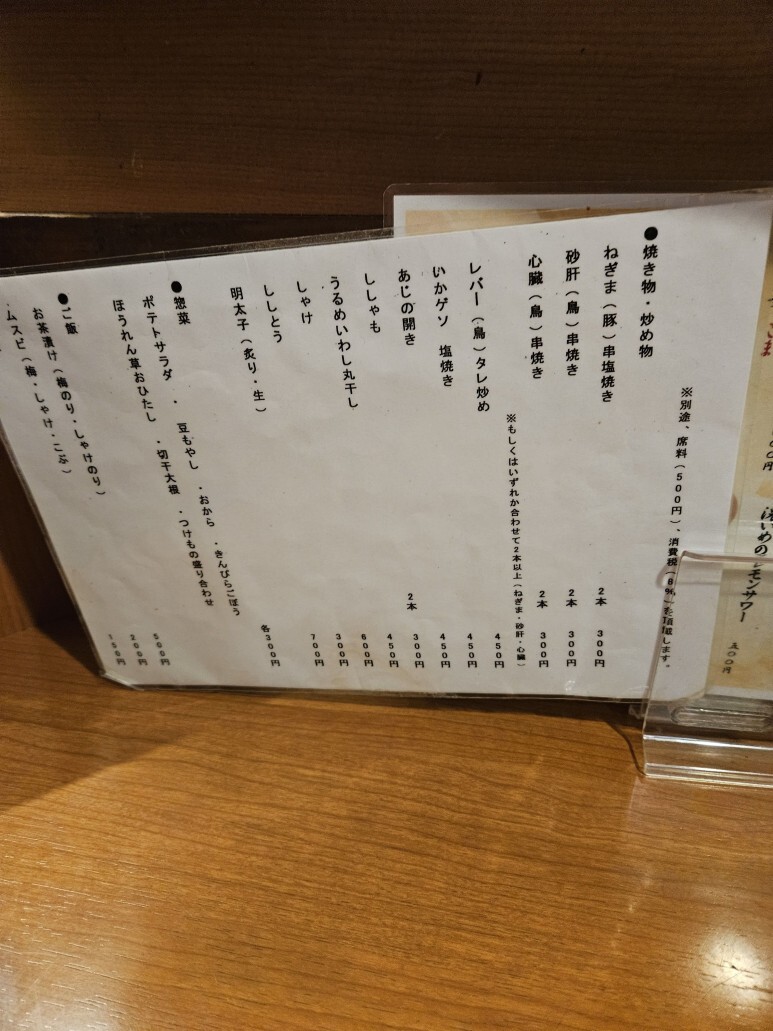 ※別途、席料(500円)、消費税(8%)を頂戴します。
●焼き物・炒め物
ねぎま(豚)串塩焼き 2本 300円
砂肝(鳥)串焼き 2本 300円
心臓(鳥)串焼き 2本 300円
※もしくはいずれか合わせて2本以上(ねぎま・砂肝・心臓)
レバー(鳥)タレ炒め 450円
いかゲソ 塩焼き 450円
あじの開き 450円
ししゃも 2本 300円
うるめいわし丸干し 450円
しゃけ 600円
ししとう 300円
明太子(炙り・生) 700円
●惣菜 各300円
ポテトサラダ ・ 豆もやし ・おから ・きんぴらごぼう
ほうれん草おひたし ・切干大根 ・つけもの盛り合わせ
●ご飯
お茶漬け(梅のり・しゃけのり) 500円
ムスビ(梅・しゃけ・こぶ) 200円
150円
レモンサワー 五〇〇円